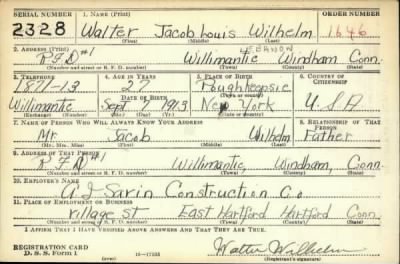 SERIAL NUMBER 1. NAME (Print) ORDER NUMBER
2328 Walter Jacob Louis Wilhelm 1646
(First) (Middle) (Last)
2. ADDRESS (Print) LEBANON
R F D #1 Willimantic Windham Conn.
(Number and street or R. F. D. number) (Town) (County) (State)
3. TELEPHONE 4. AGE IN YEARS 5. PLACE OF BIRTH 6. COUNTRY OF CITIZENSHIP
1871-13 27 Poughkeepsie
DATE OF BIRTH (Town or county)
Willimantic Sept 1913 New York U.S.A
(Exchange) (Number) (Mo.) (Day) (Yr.) (State or country)
7. NAME OF PERSON WHO WILL ALWAYS KNOW YOUR ADDRESS 8. RELATIONSHIP OF THAT PERSON
Mr. Jacob Wilhelm Father
(Mr., Mrs., Miss) (First) (Middle) (Last)
9. ADDRESS OF THAT PERSON
R F D #1 Willimantic, Windham, Conn.
(Number and street or R. F. D. number) (Town) (County) (State)
10. EMPLOYER'S NAME
Construction Co
11. PLACE OF EMPLOYMENT OR BUSINESS
Village st East Hartford Hartford Conn.
(Number and street or R. F. D. number) (Town) (County) (State)
I AFFIRM THAT I HAVE VERIFIED ABOVE ANSWERS AND THAT THEY ARE TRUE.
REGISTRATION CARD
D. S. S. Form 1 (over) 16—17105 Walter Wilhelm
(Registrant's signature)